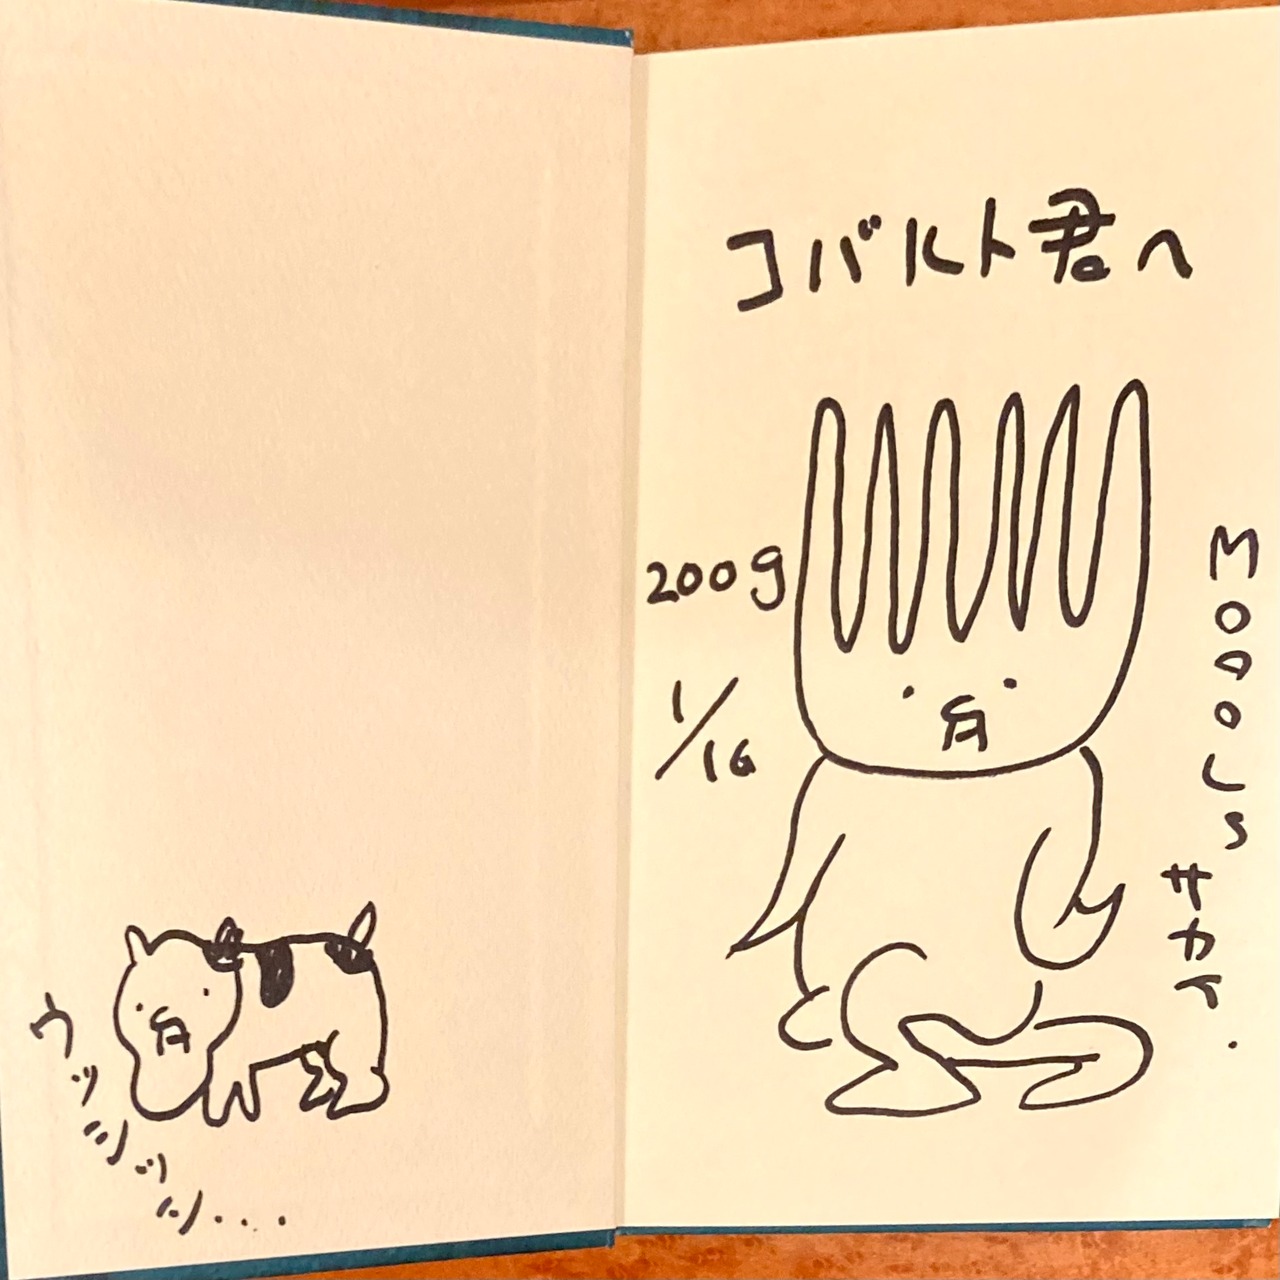 コバルト君へ
200g
1/16
MOOOLS
サカイ.
ウッシッシ...